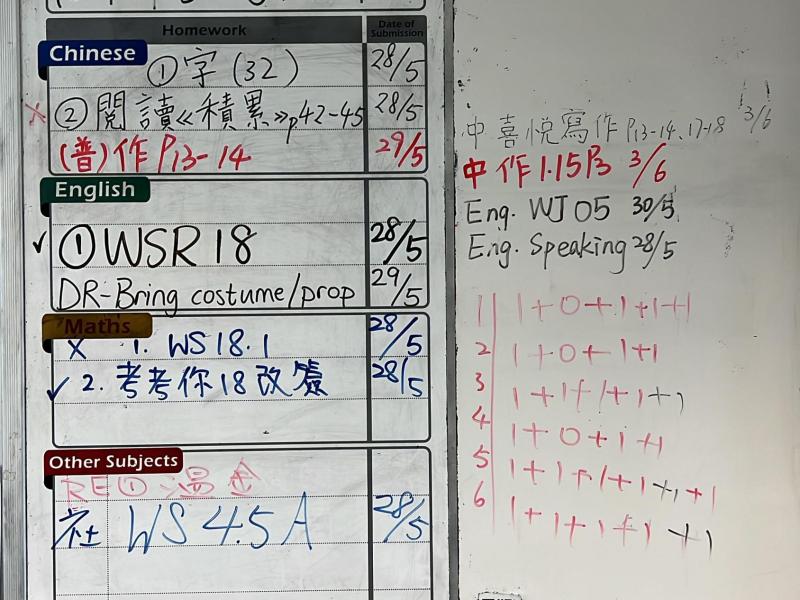 Homework
Date of Submission
Chinese
① 字 (32) 28/5
x ② 閱讀《積累》p.42-45 28/5
(普) 作 P13-14 29/5
English
✓ ① WSR 18 28/5
DR-Bring costume/prop 29/5
Maths
x 1. WS 18.1 28/5
✓ 2. 考考你18改簽 28/5
Other Subjects
RE ① 溫 金
社 WS 4.5 A 28/5
中喜悅寫作 P13-14、17-18 3/6
中作 1.15 P3 3/6
Eng. WJ 05 30/5
Eng. Speaking 28/5
1 1+0+1+1+1
2 1+0+1+1
3 1+1+1+1+1
4 1+0+1+1
5 1+1+1+1+1+1
6 1+1+1+1+1